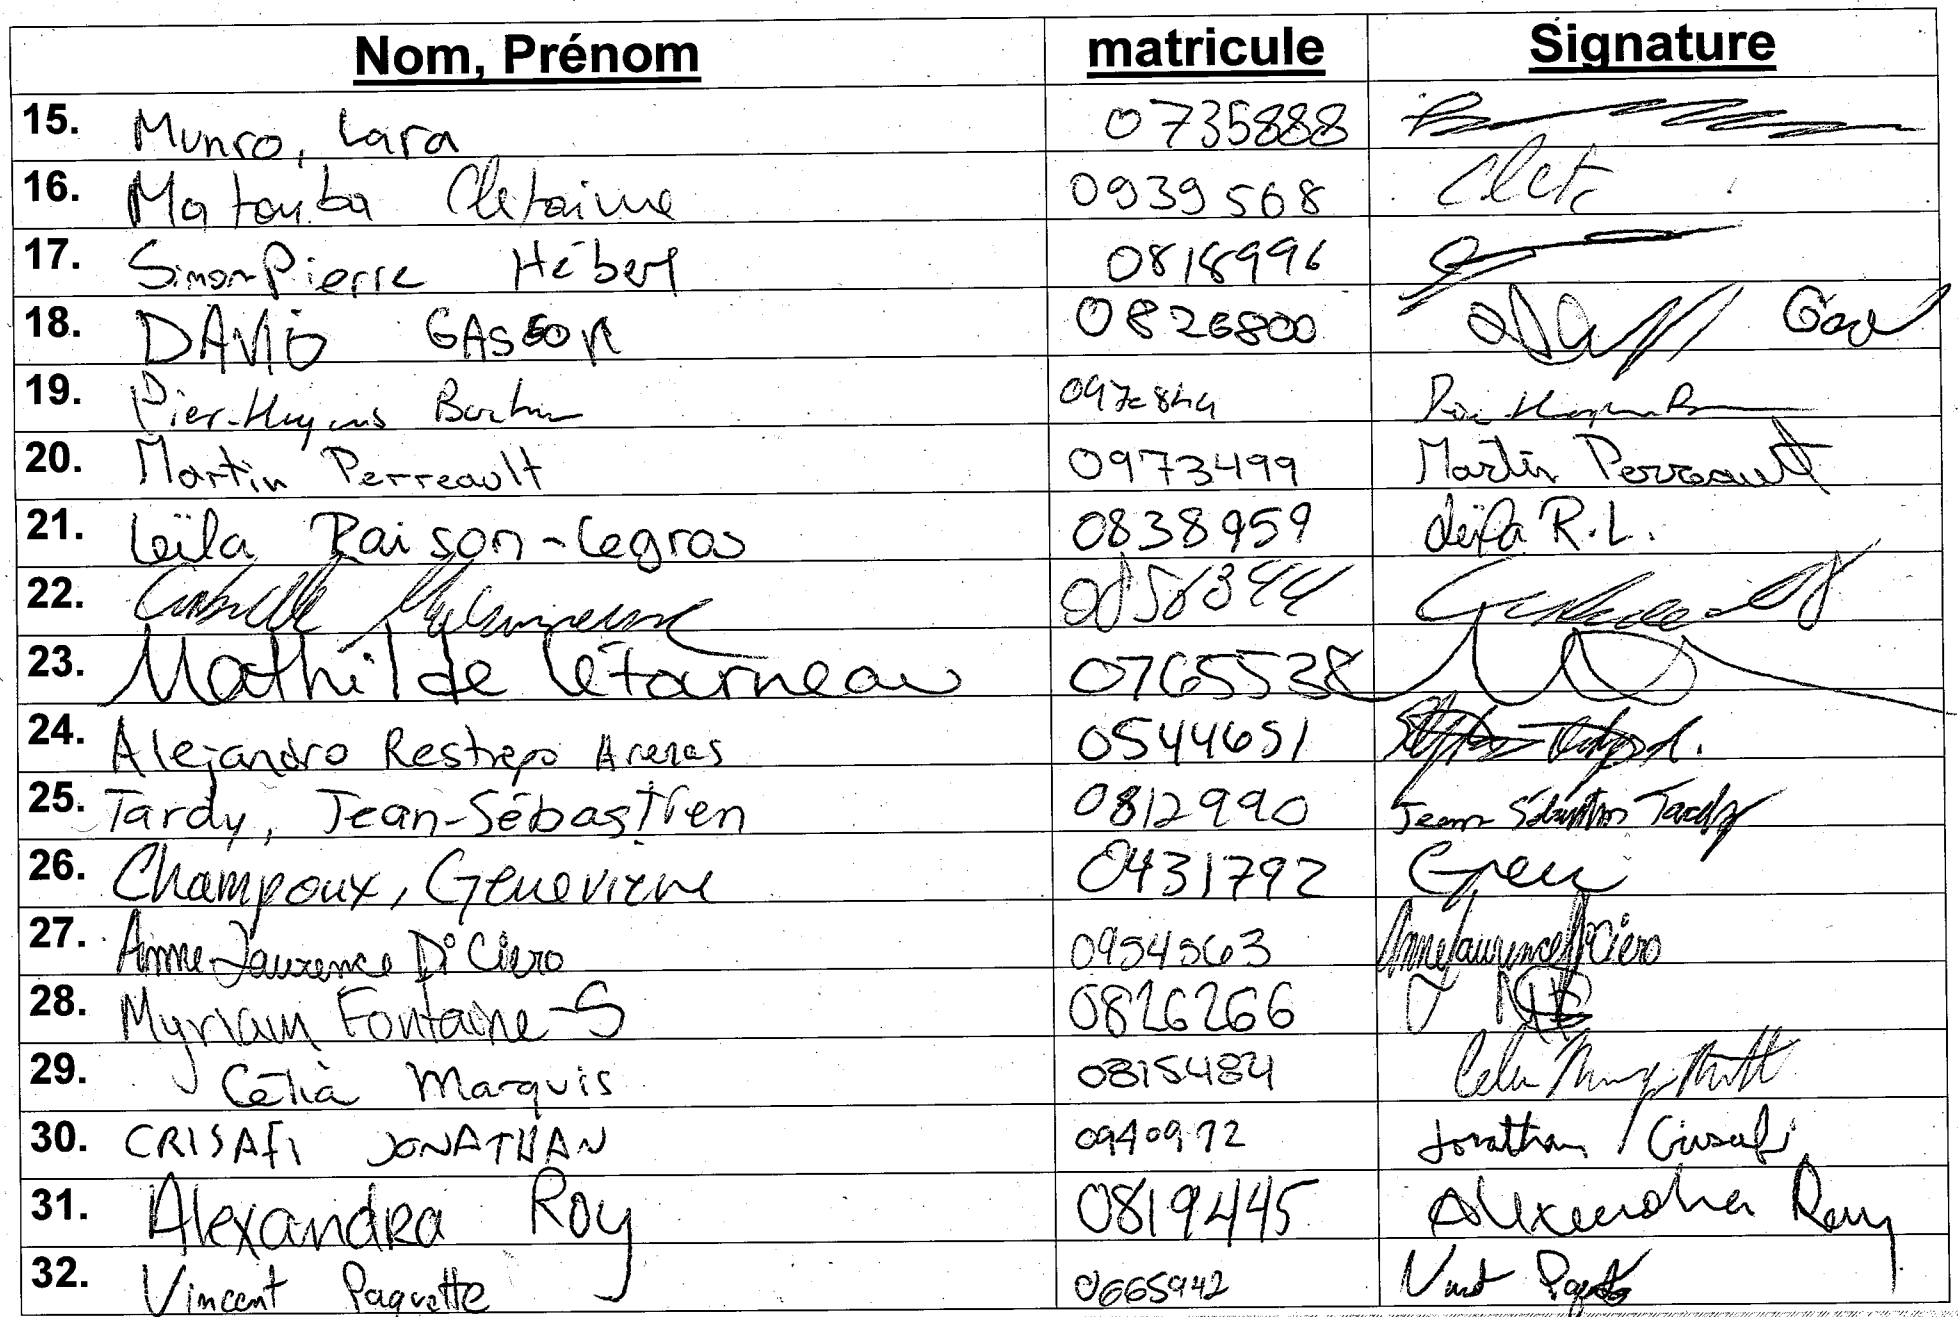 Nom, Prénom matricule Signature
15. Munro, Lara 0735888
16. Matouba Cletaime 0939568
17. Simon-Pierre Hébert 0818996
18. DAVID GASSON 0826800
19. Pier-Huyens
20. Martin Perreault 0973499 Martin Perreault
21. Leïla Raison-Legros 0838959 Leïla R.L.
22. 
23. Mathilde Létourneau 0765538
24. Alejandro Restrepo Arenas 0544651
25. Tardy, Jean-Sébastien 0812990 Jean Sébastien Tardy
26. Champoux, Geneviève 0431792
27. Anne-Laurence Di Ciero 0954563 Anne Laurence Di Ciero
28. Myriam Fontaine-S 0826266
29. Célia Marquis 0815484
30. CRISAFI JONATHAN 0940972 Jonathan Crisafi
31. Alexandra Roy 0819445 Alexandra Roy
32. Vincent Paquette 0665942